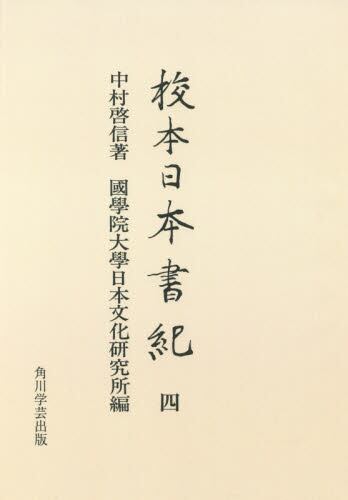 校本日本書紀 四
中村啓信著 國學院大學日本文化研究所編
角川学芸出版